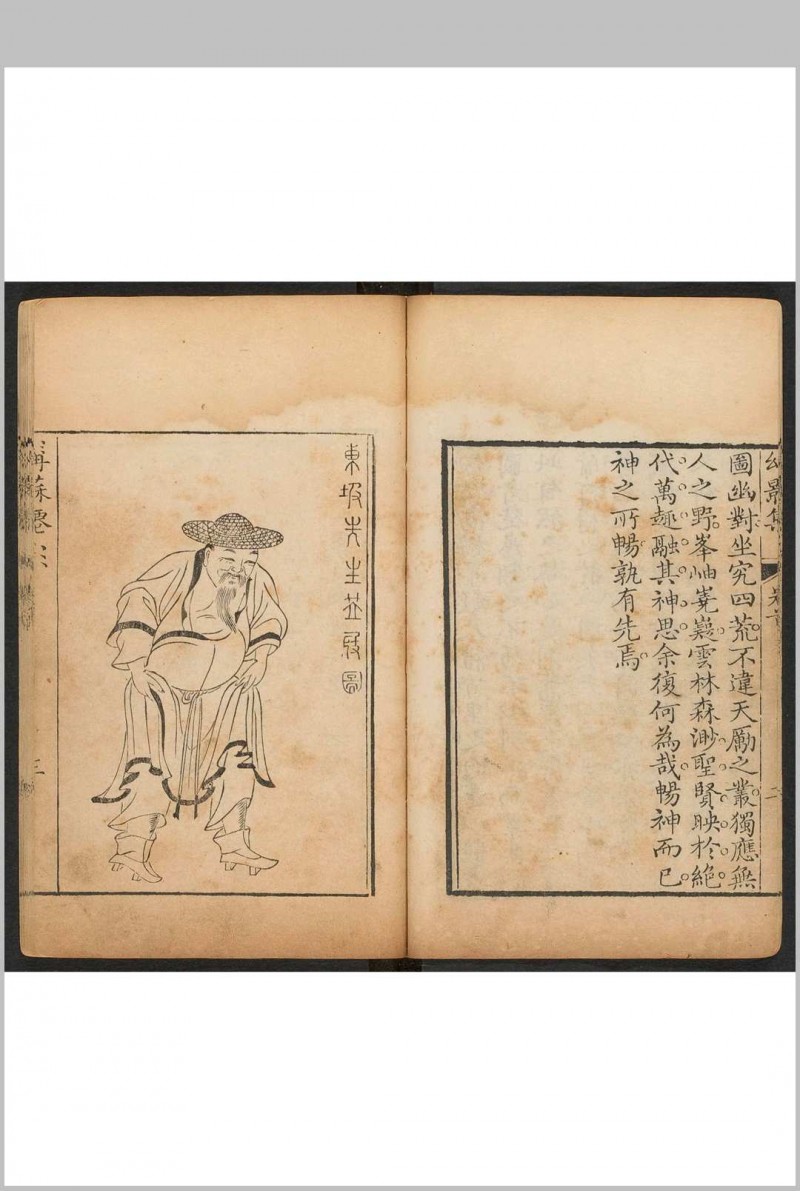 圖幽對坐究四荒不違天勵之藂獨應無
人之野峯岫嶤嶷雲林森渺聖賢映於絶
代萬趣融其神思余復何為哉暢神而已
神之所暢孰有先焉
二
東坡先生笠屐圖
三